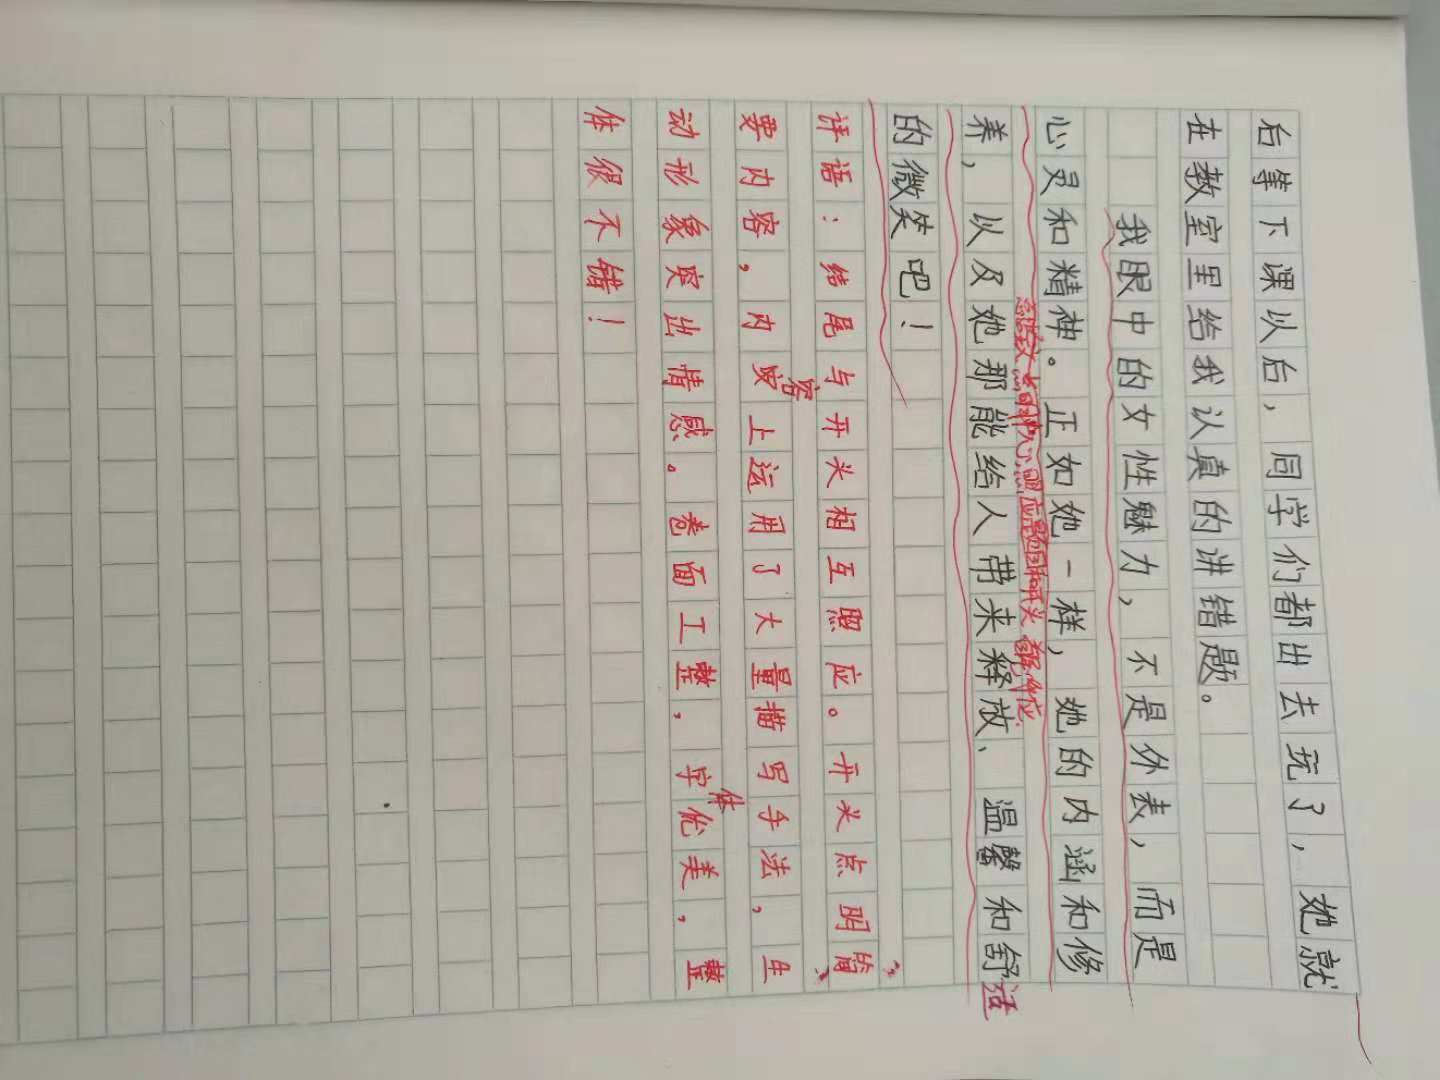 后等下课以后，同学们都出去玩了，她就
在教室里给我认真的讲错题。
我眼中的女性魅力，不是外表，而是
心灵和精神。正如她一样，她的内涵和修
应题目和开头
养，以及她那能给人带来释放、温馨和舒适
的微笑吧！
评语：结尾与开头相互照应。开头点明简
要内容，内容上运用了大量描写手法，生
动形象突出情感。卷面工整，字体优美，整
体很不错！